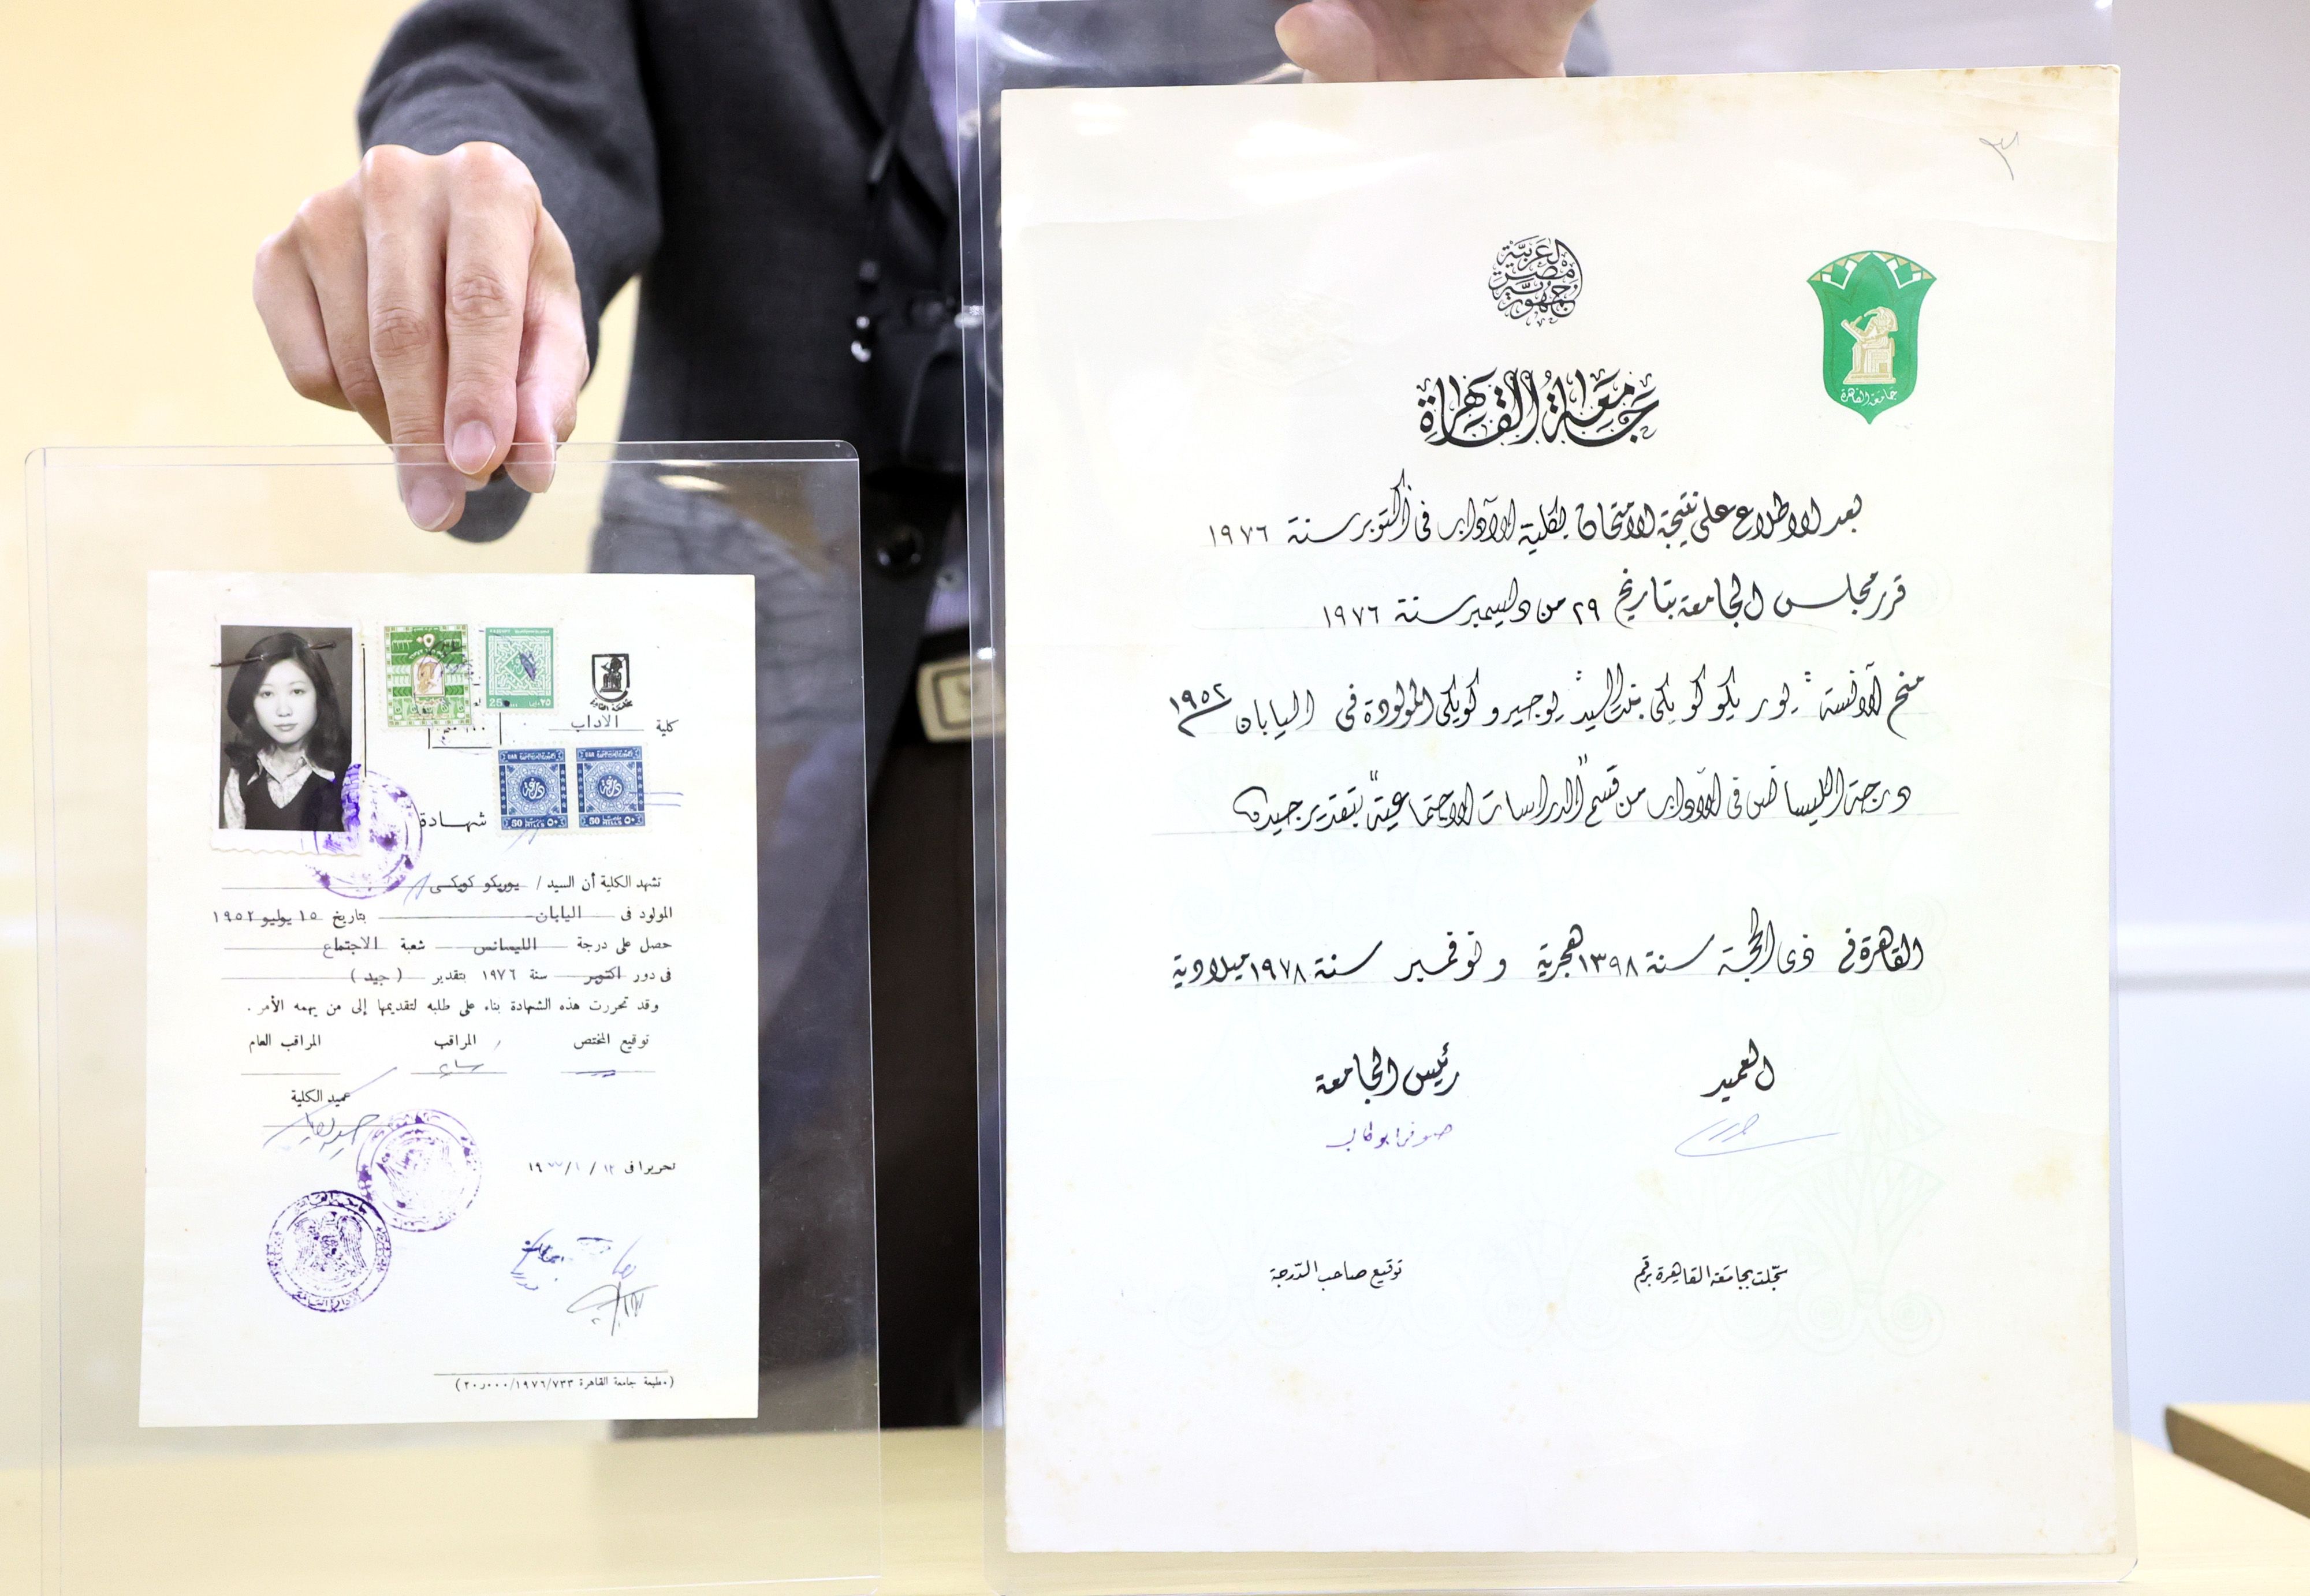 كلية الاداب
25 ٢٥
50 MILLS ٥٠
50 MILLS ٥٠
شهادة
تشهد الكلية أن السيد / يوريكو كويكى
المولود فى اليابان بتاريخ ١٥ يوليو ١٩٥٢
حصل على درجة الليسانس شعبة الاجتماع
فى دور اكتوبر سنة ١٩٧٦ بتقدير ( جيد )
وقد تحررت هذه الشهادة بناء على طلبه لتقديمها إلى من يهمه الأمر .
توقيع المختص المراقب المراقب العام
عميد الكلية
تحريرا فى ١٢ / ١ /
(مطبعة جامعة القاهرة ٧٣٣/١٩٧٦/٢٠٫٠٠٠)
٣
جمهورية مصر العربية
جامعة القاهرة
جامعة القاهرة
بعد الاطلاع على نتيجة الامتحان لكلية الآداب فى أكتوبر سنة ١٩٧٦
قرر مجلس الجامعة بتاريخ ٢٩ من ديسمبر سنة ١٩٧٦
منح الآنسة : يوريكو كويكى بنت السيد : يوجيرو كويكى المولودة فى اليابان ١٩٥٢
درجة الليسانس فى الآداب من قسم "الدراسات الاجتماعية" بتقدير جيد
القاهرة فى ذى الحجة سنة ١٣٩٨ هجرية ونوفمبر سنة ١٩٧٨ ميلادية
العميد رئيس الجامعة
صوفى ابو طالب
سجلت بجامعة القاهرة برقم توقيع صاحب الدرجة